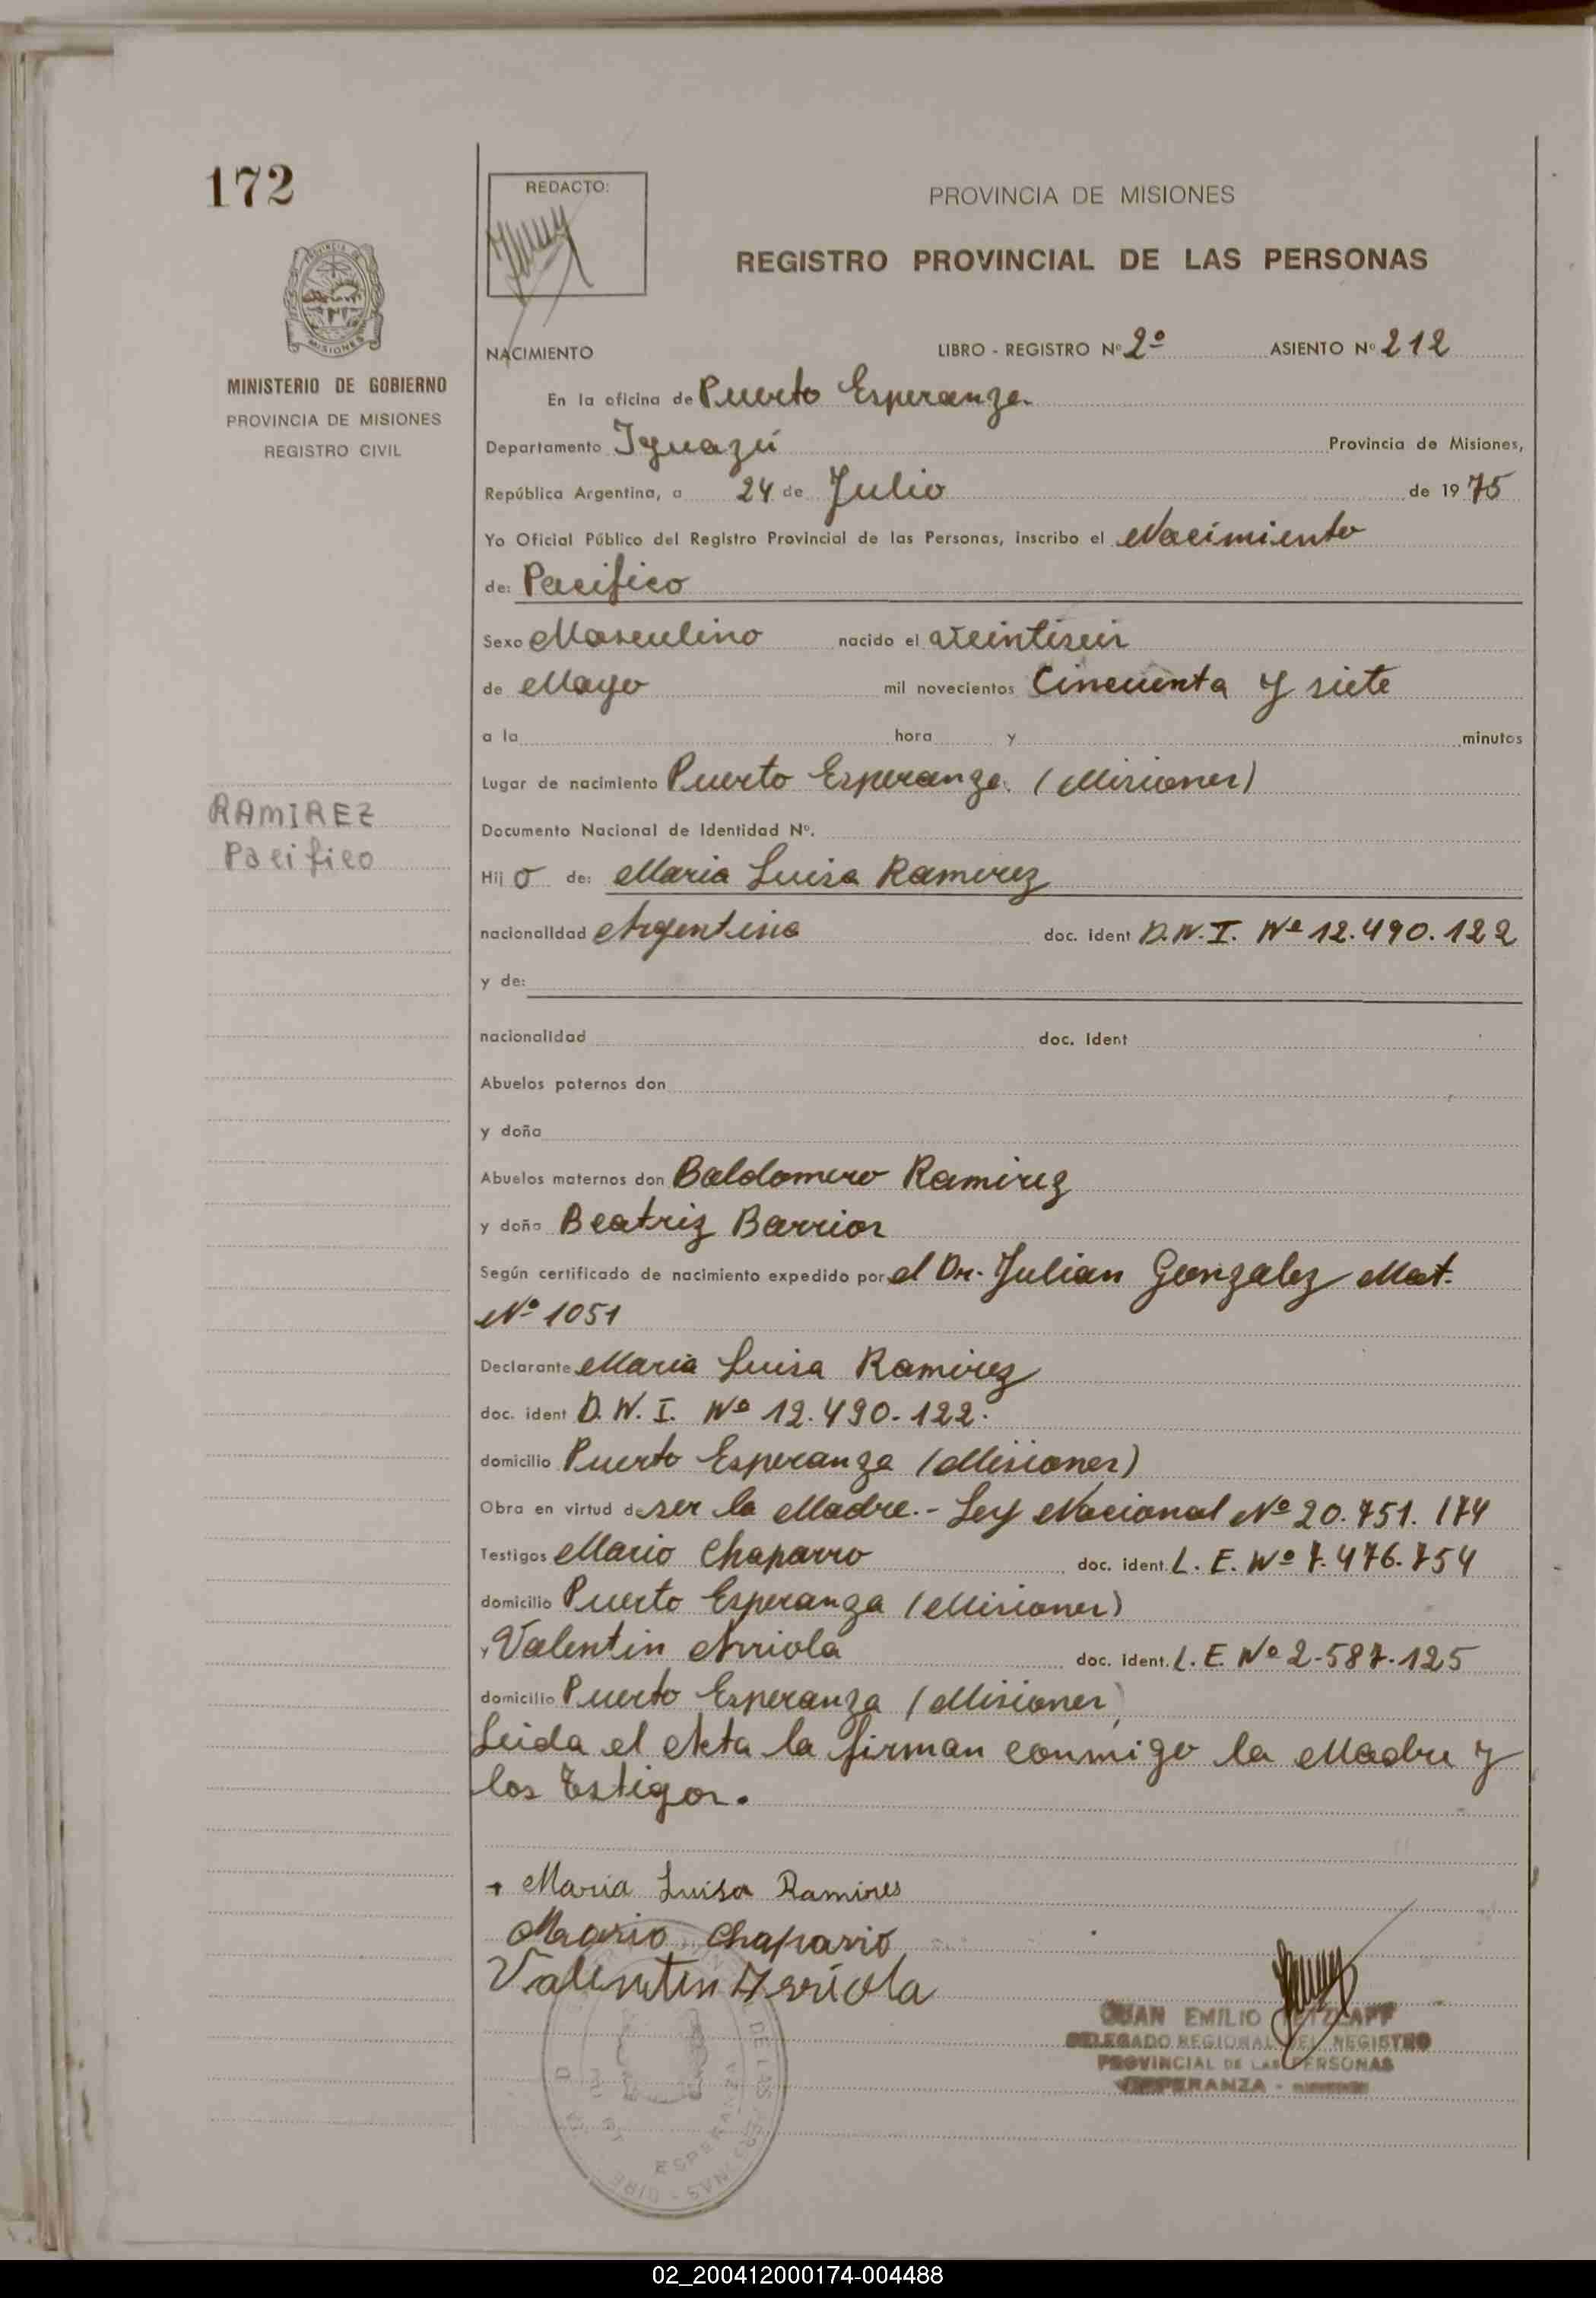 172
REDACTO:
PROVINCIA DE MISIONES
REGISTRO PROVINCIAL DE LAS PERSONAS
MISIONES
MINISTERIO DE GOBIERNO
PROVINCIA DE MISIONES
REGISTRO CIVIL
NACIMIENTO LIBRO - REGISTRO Nº 2º ASIENTO Nº 212
En la oficina de Puerto Esperanza
Departamento Iguazú Provincia de Misiones,
República Argentina, a 24 de Julio de 1975
Yo Oficial Público del Registro Provincial de las Personas, inscribo el Nacimiento
de: Pacifico
Sexo Masculino nacido el veintiseis
de Mayo mil novecientos Cincuenta y siete
a la hora y minutos
Lugar de nacimiento Puerto Esperanza (Misiones)
RAMIREZ
Pacifico
Documento Nacional de Identidad Nº.
Hijo de: Maria Luisa Ramirez
nacionalidad Argentina doc. ident D.N.I. Nº 12.490.122
y de:
nacionalidad doc. ident
Abuelos paternos don
y doña
Abuelos maternos don Baldomero Ramirez
y doña Beatriz Barrios
Según certificado de nacimiento expedido por el Dr. Julian Gonzalez Mat.
Nº 1051
Declarante Maria Luisa Ramirez
doc. ident D.N.I. Nº 12.490.122.
domicilio Puerto Esperanza (Misiones)
Obra en virtud de ser la Madre.- Ley Nacional Nº 20.751. 174
Testigos Mario Chaparro doc. ident. L.E. Nº 7.476.754
domicilio Puerto Esperanza (Misiones)
y Valentin Arriola doc. ident. L.E. Nº 2-587-125
domicilio Puerto Esperanza (Misiones)
Leida el Acta la firman conmigo la Madre y
los Testigos.
Maria Luisa Ramires
Mario Chaparro
Valentin Arriola
JUAN EMILIO
DELEGADO REGIONAL DEL REGISTRO
PROVINCIAL DE LAS PERSONAS
ESPERANZA -
DE LAS PERSONAS - DIRE
ESPERANZA
02_200412000174-004488